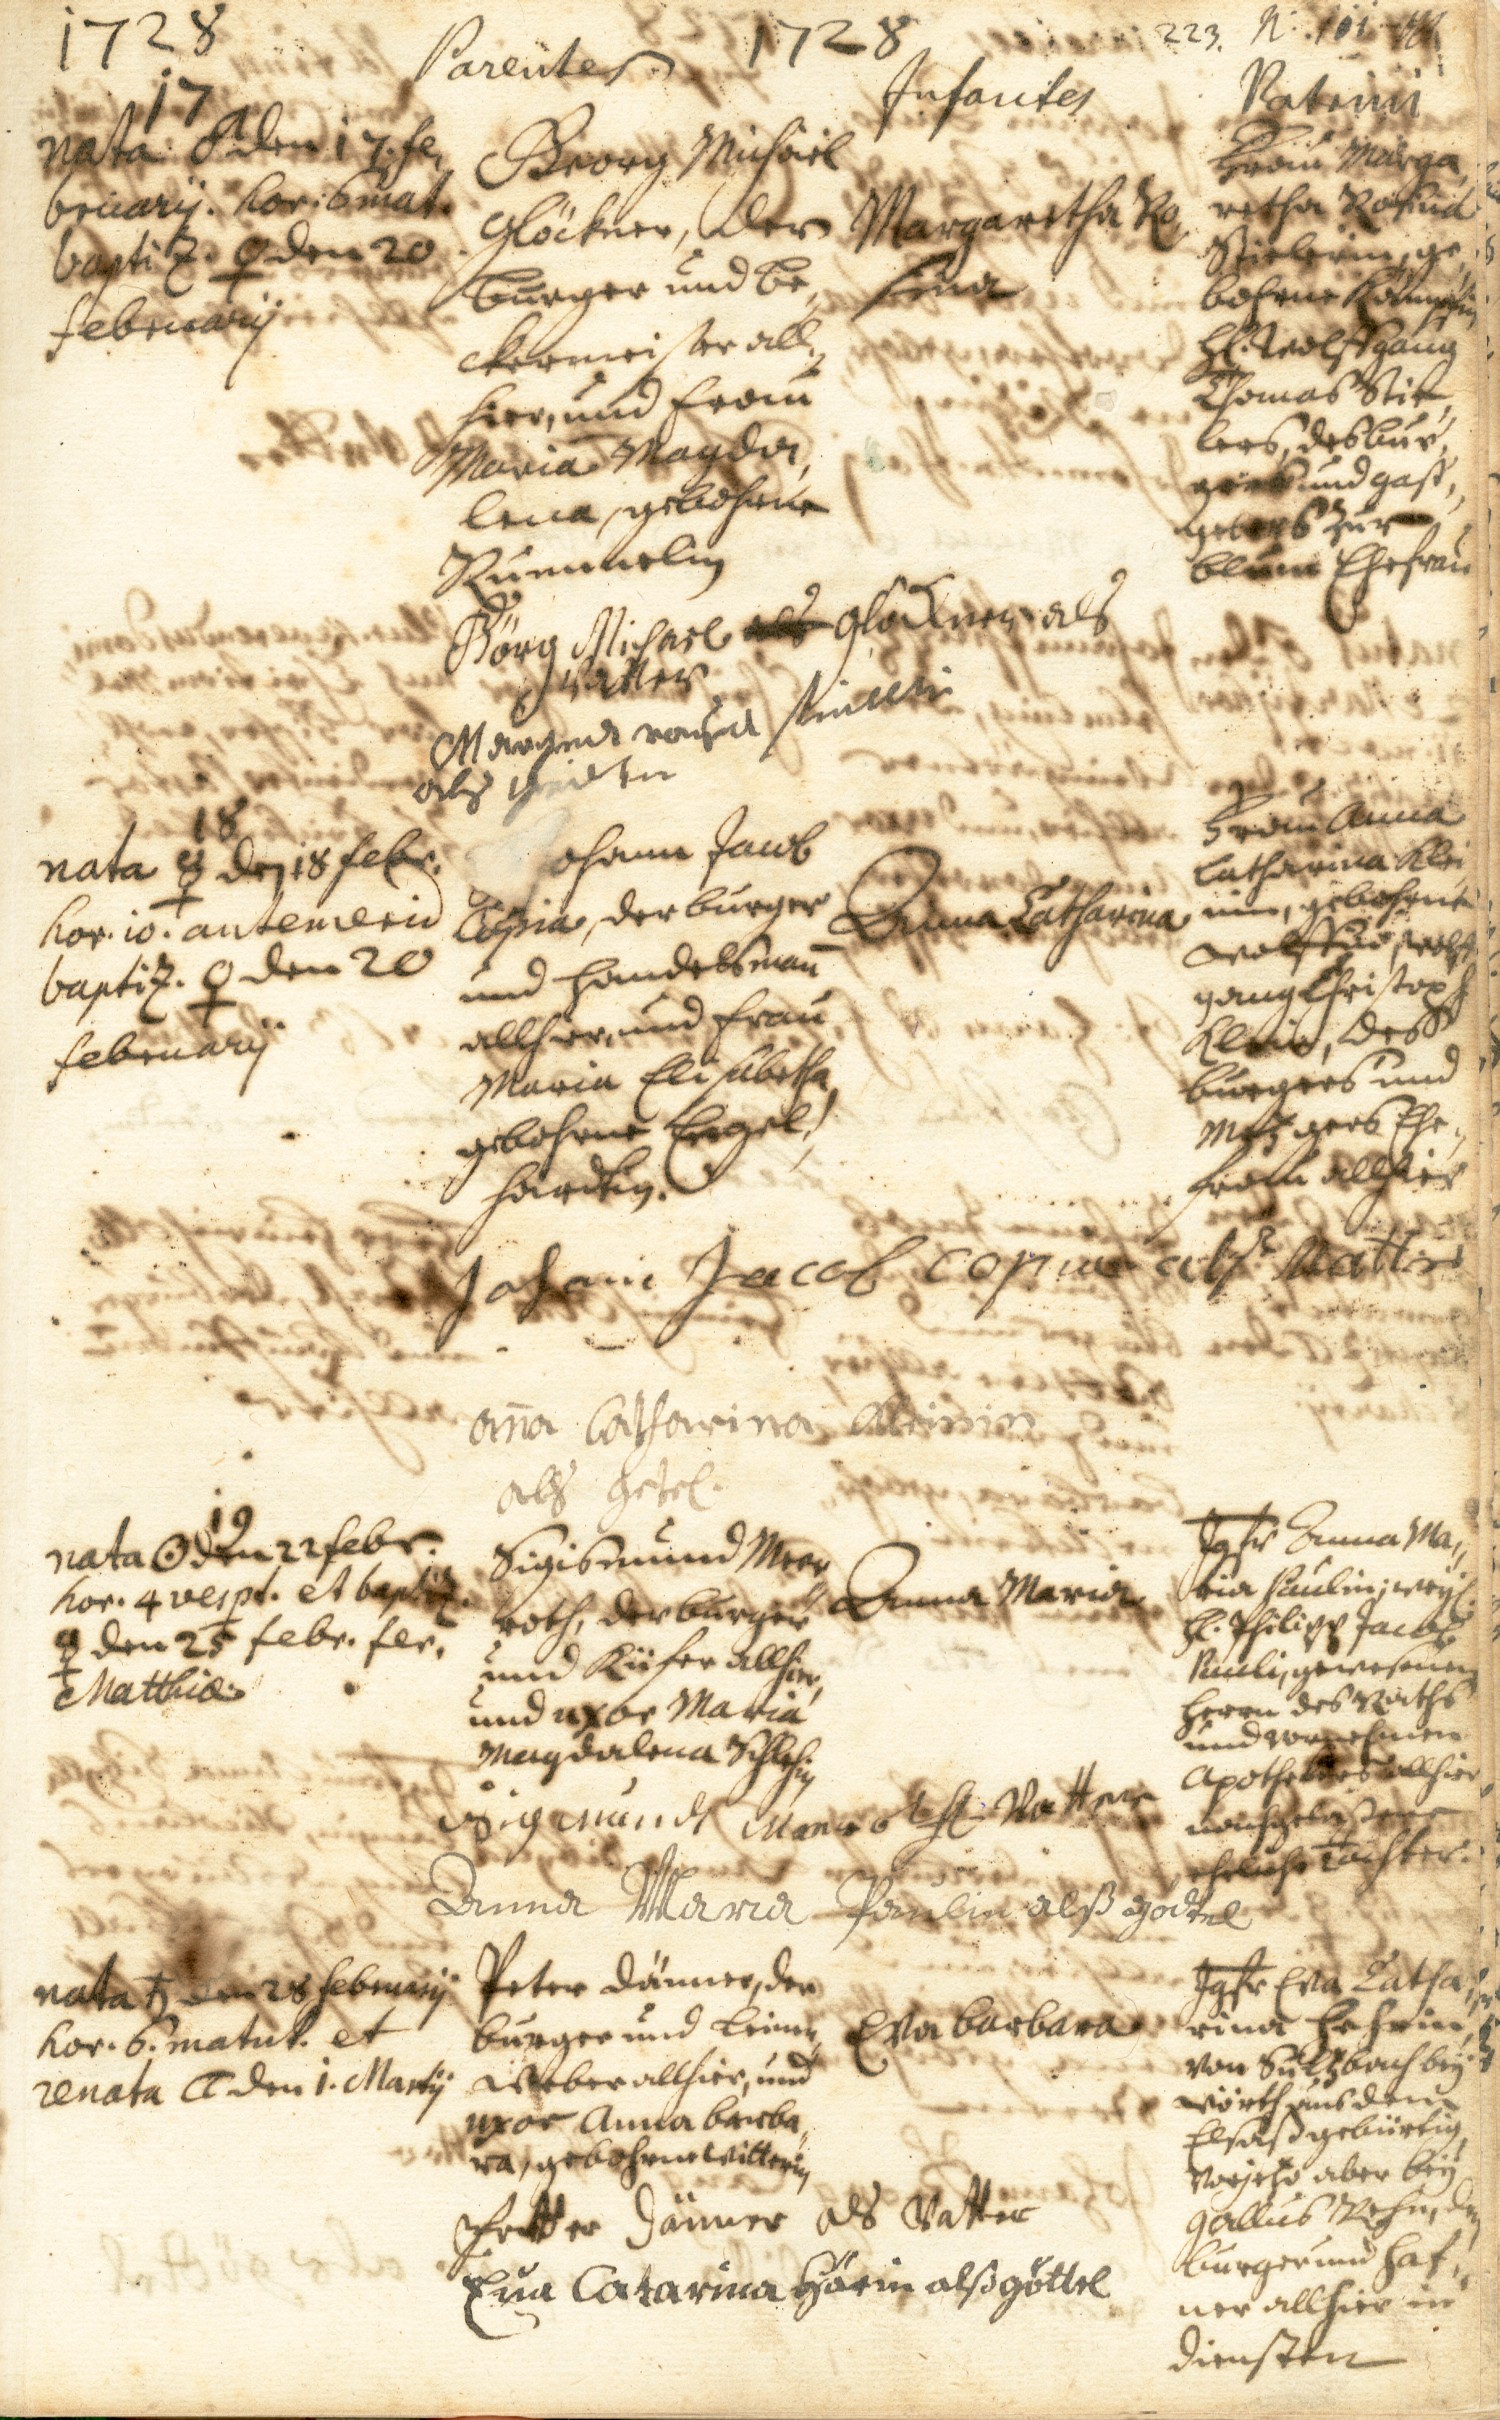 1728
1728
223.
Parentes
Infantes
Patrini
17
nata ♂ den 17. fe,
bruarij. hor: 6 mat.
baptiz. ♀ den 20
februarij
Georg Michael
Glöckner, der
burger und be,
ckermeister all,
hier, und Frau
Maria Magda,
lena, gebohrne
Rummelin
Margaretha Ro,
sina
Frau Marga,
retha Rosina
Stielerin, ge,
bohrne
H. Wolffgang
Thomas Stie,
lers, des bur,
gers und gast,
gebers zur
blum Ehefrau
Görg Michael Glöckner als
Vatter
als
18
nata ☿ den 18 febr.
hor. 10. antemerid
baptiz. ♀ den 20
februarij
Johann Jacob
Copia, der burger
und handelsmañ
allhier, und Frau
Maria Elisabetha
gebohrne Engel,
hardtin.
Anna Catharina
Frau Anna
Catharina Klei
nin, gebohrne
Wolffin, Wolff
gang Christoph
Klein, dess
burgers und
Metzgers Ehe,
frau allhier
Johann Jacob Copia als Vatter
aña Catharina Kleinin
als getel.
19
nata ☉ den 22 febr.
hor. 4 vespt. et baptiz.
☿ den 25 febr. fer.
Matthiæ.
Sigismund Meer
roth, der burger
und Küfer allhier,
und uxor Maria
Magdalena
Anna Maria
Jgfr Anna Ma,
ria Paulin, weyl.
H. Philipp Jacob
Pauli, gewesenen
Herrn des Raths
und vornehmen
Apotheckers allhier
nachgelassene
eheliche Tochter.
Sigmundt Meeroth Vatter
Anna Maria Paulin alß godtel
nata ♄ den 28 februarij
hor. 6. matut. et
renata ☾ den 1. Martij
Peter Dänner, der
burger und Leinen,
weber allhier, und
uxor Anna barba,
ra, gebohrne Witterin
Eva barbara
Jgfr Eva Catha,
rina
von Sultzbach bey
Wörth aus dem
Elsaß gebürtig,
vorjetzo aber bey
Gallus der
burger und Haf,
ner allhier in
diensten
Petter Dänner als Vatter
Eua Catarina Härin alß göttel